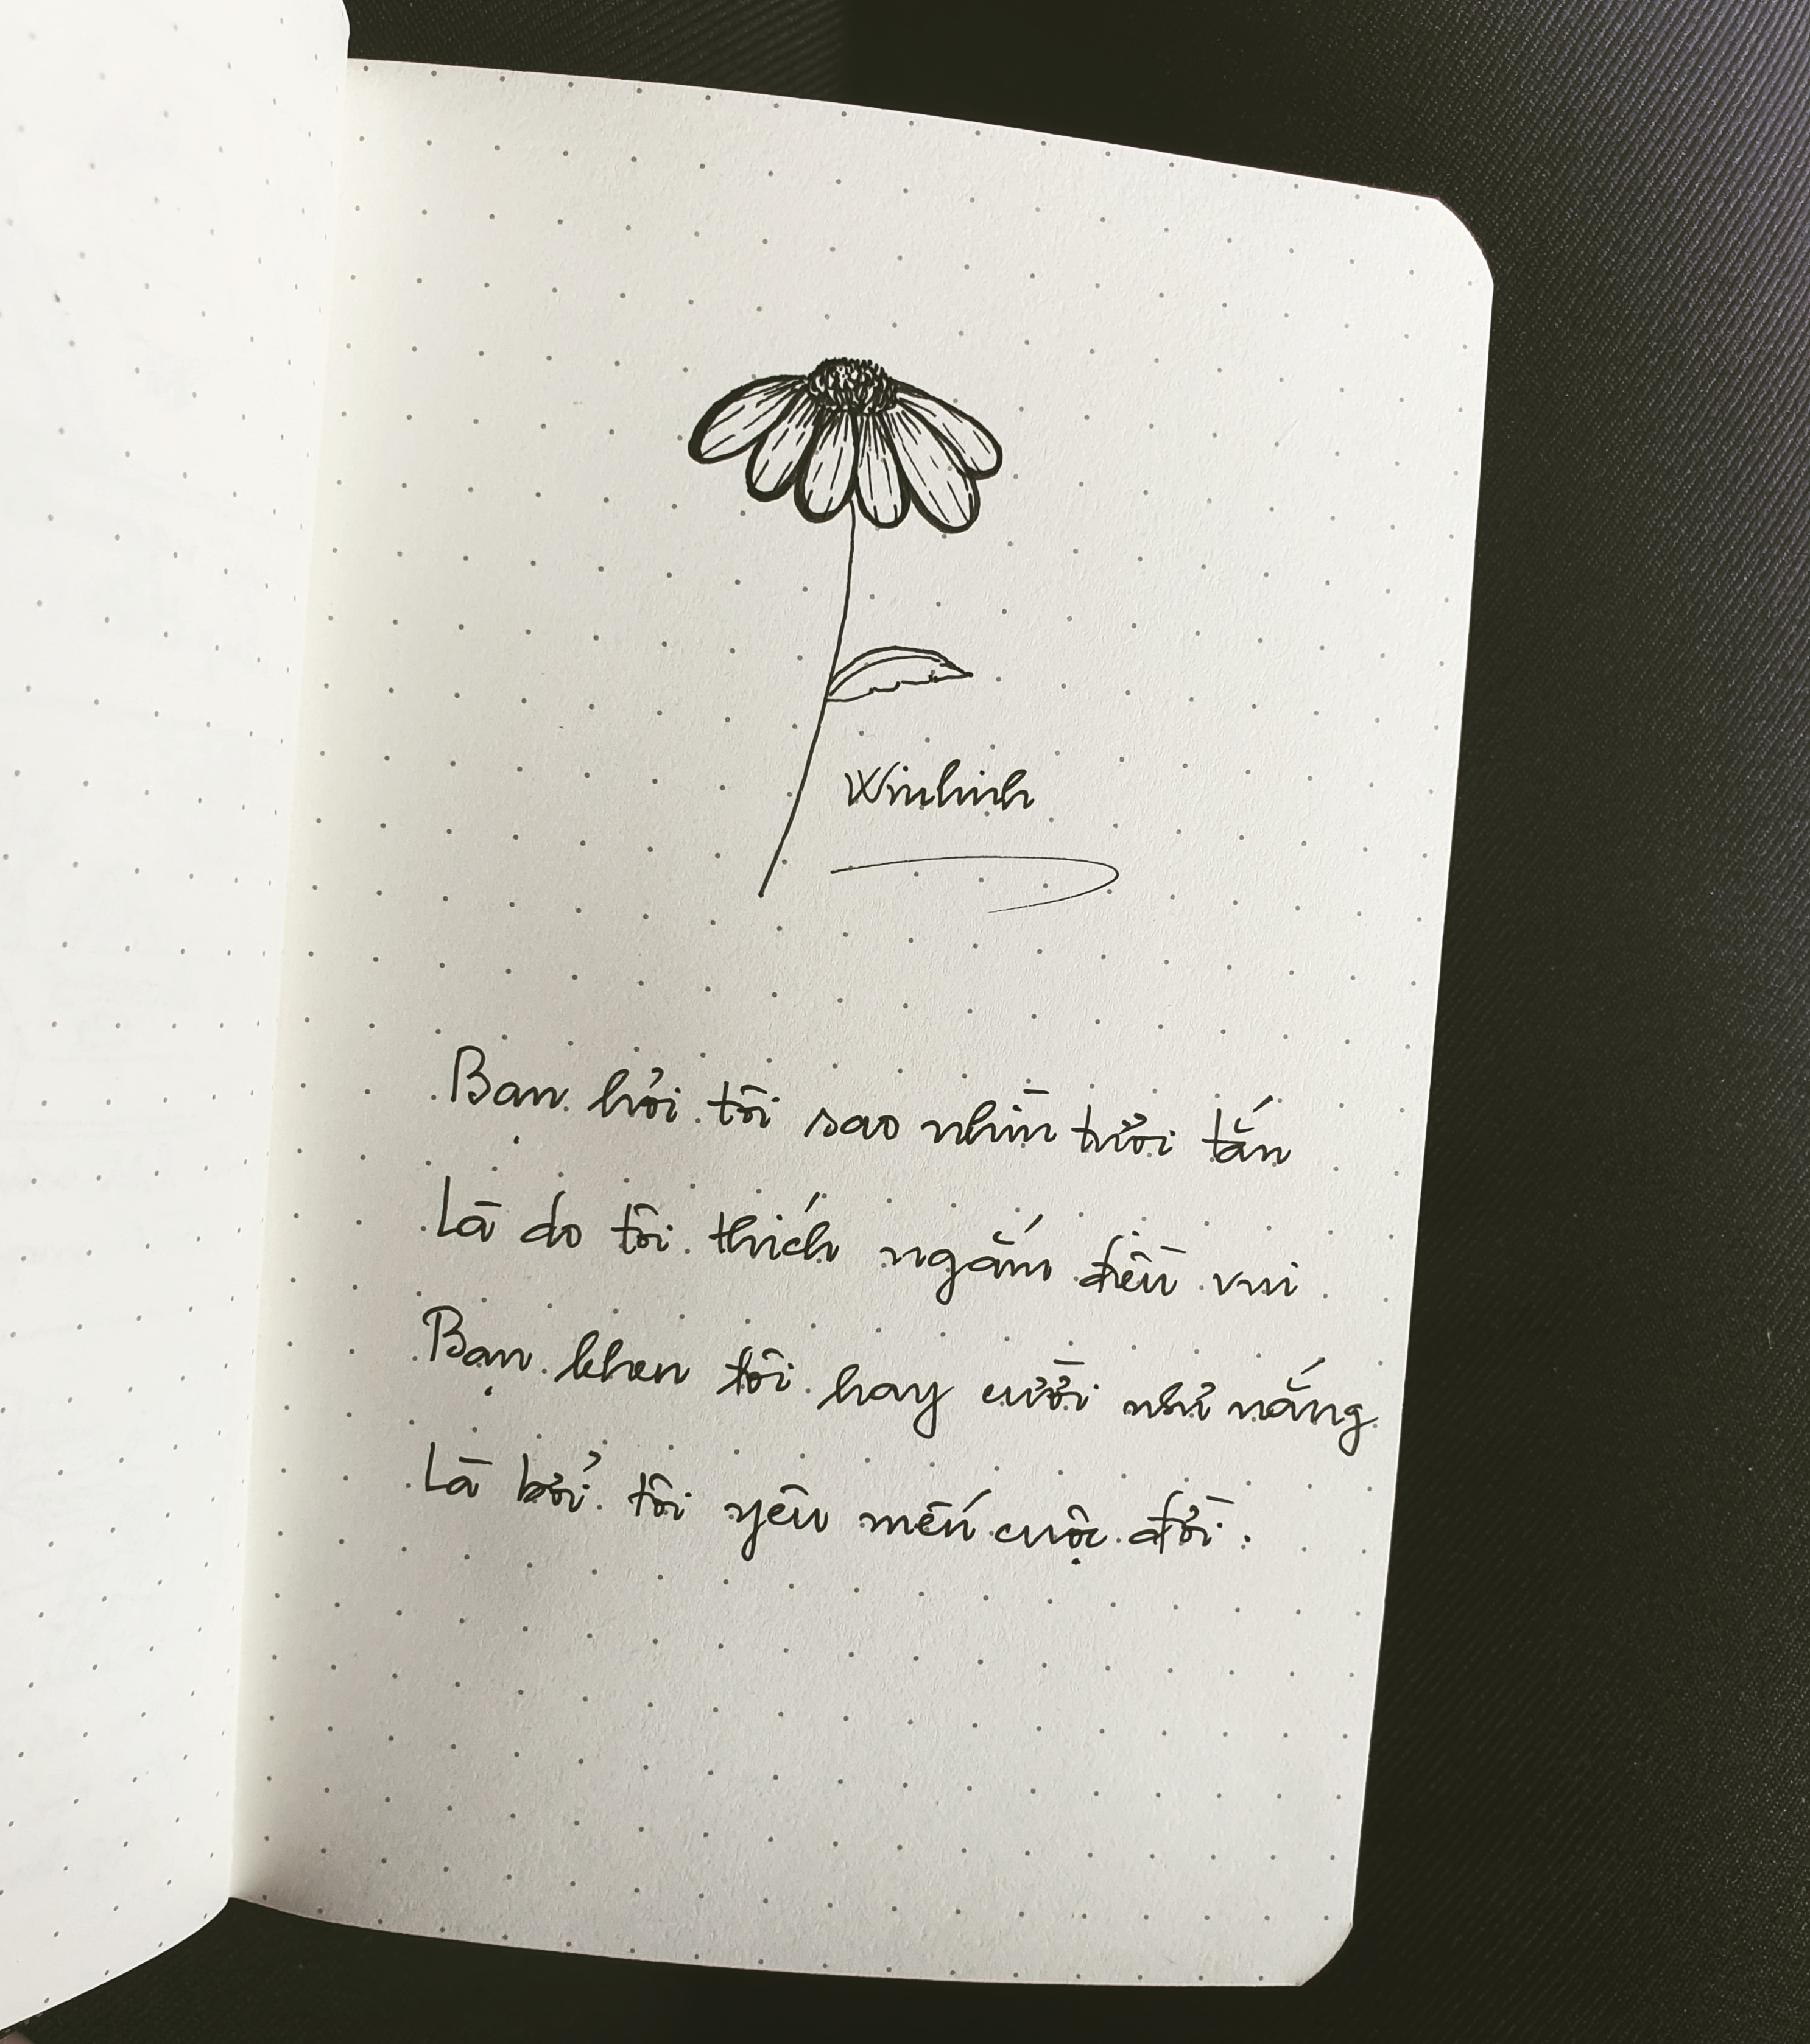 Winhinh
Bạn hỏi tôi sao nhìn tươi tắn
Là do tôi thích ngắm điều vui
Bạn khen tôi hay cười như nắng
Là bởi tôi yêu mến cuộc đời.